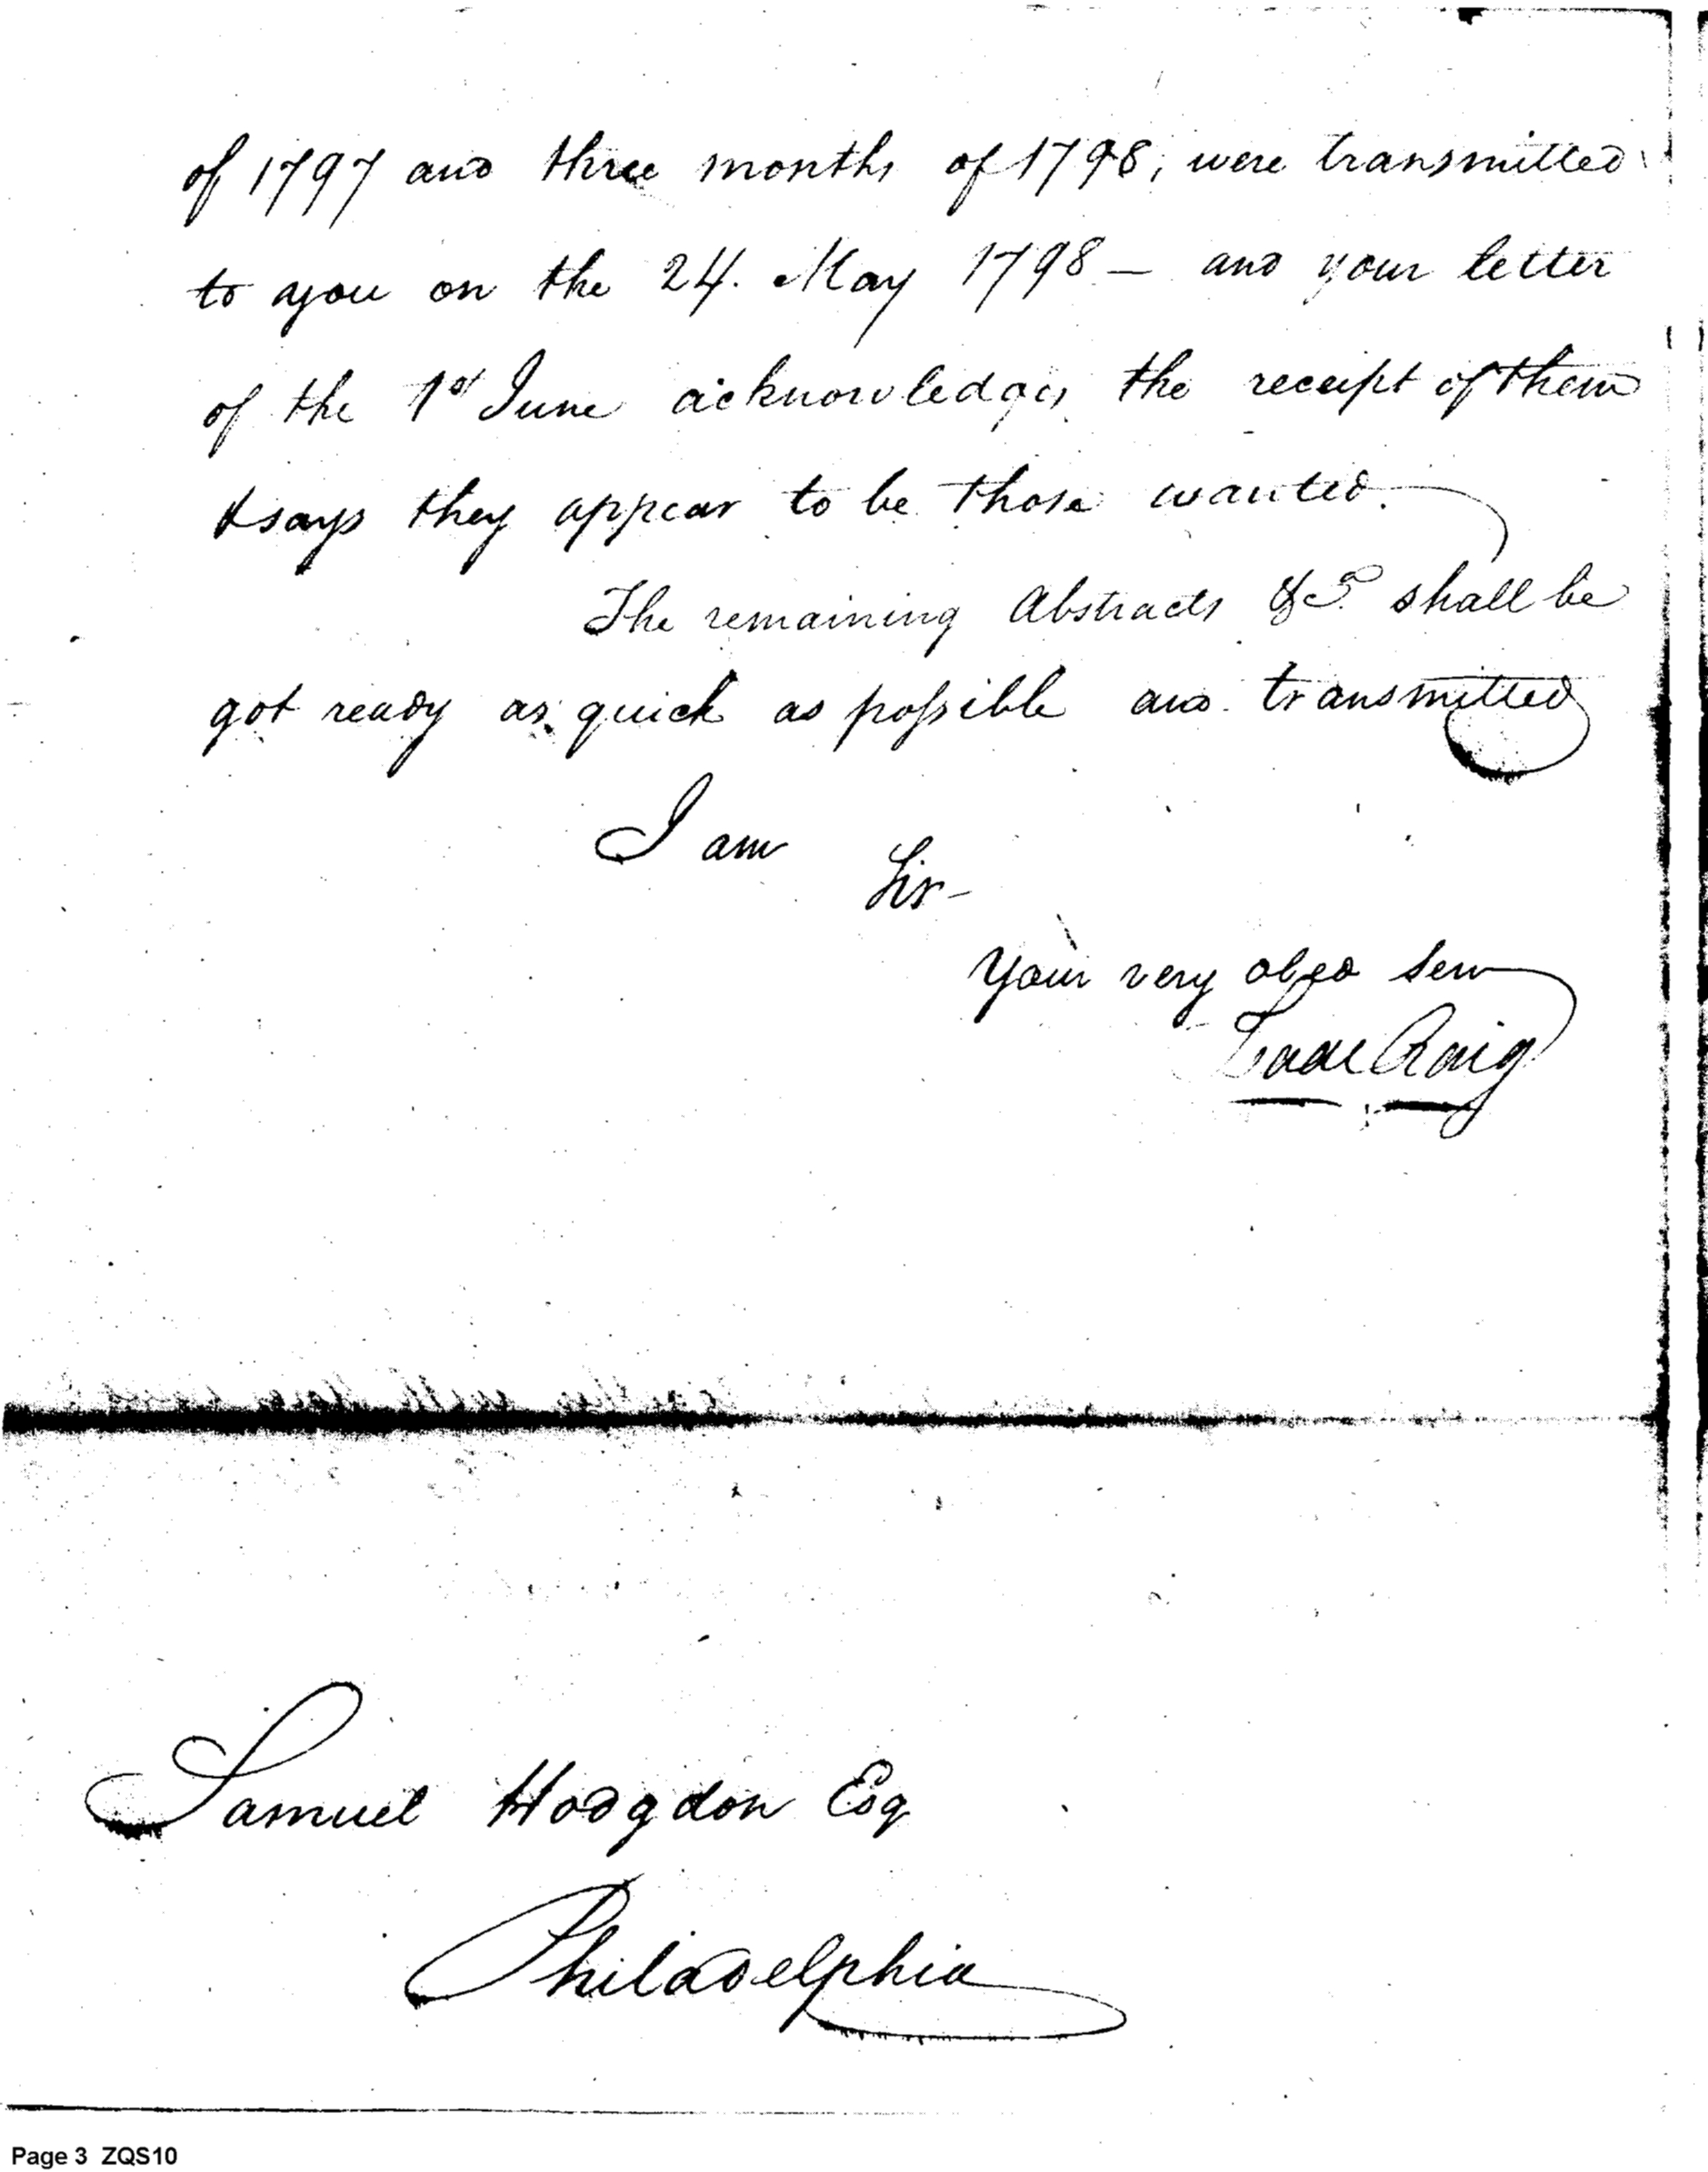 of 1797 and three months of 1798, were transmitted
to you on the 24. May 1798 — and your letter
of the 1st June acknowledges the receipt of them
& says they appear to be those wanted.
The remaining Abstracts &c. shall be
got ready as quick as possible and transmitted
I am
Sir -
Your very obed Serv
Isaac Craig
Samuel Hodgdon Esq
Philadelphia
Page 3 ZQS10